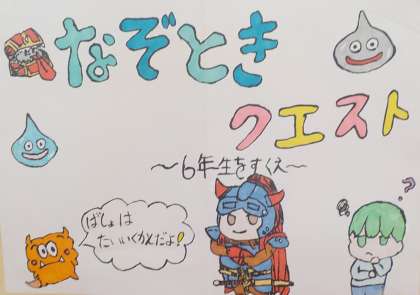 なぞとき
クエスト
～6年生をすくえ～
ばしょは
たいいくかんだよ!
?